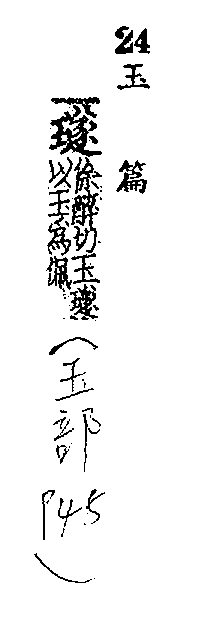 24
玉篇
璲徐醉切玉璲
以玉為佩
(玉部
P45)